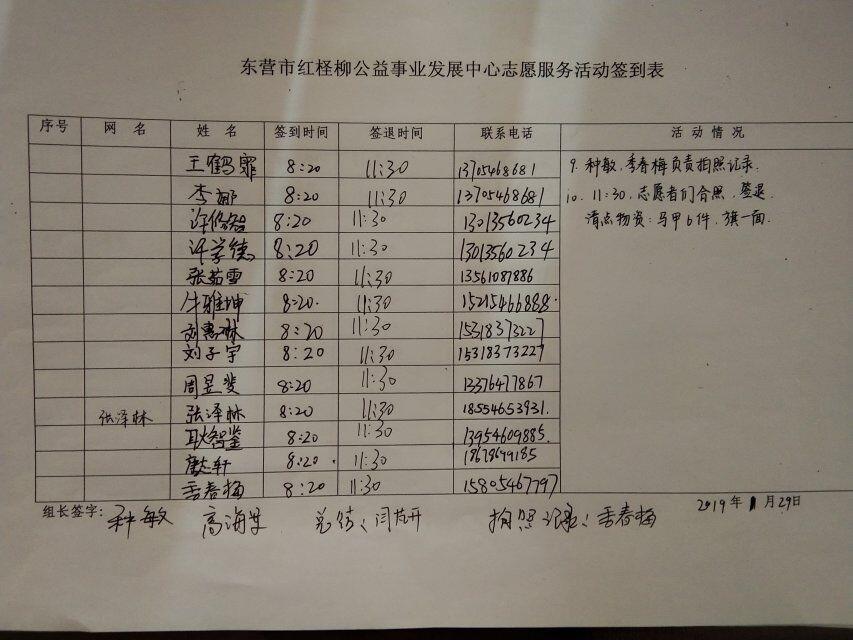 东营市红柽柳公益事业发展中心志愿服务活动签到表
序号 网名 姓名 签到时间 签退时间 联系电话 活动情况
王鹤霏 8:20 11:30 13705468681 9. 种敏,李春梅负责拍照记录.
李娜 8:20 11:30 13705468681 10. 11:30,志愿者们合照,签退.
8:20 11:30 13013560234 清点物资:马甲6件,旗一面.
许学德 8:20 11:30 13013560234
张茹雪 8:20 11:30 13561087886
牛雅坤 8:20. 11:30 15215466888.
刘惠琳 8:20 11:30 15318373227
刘子宇 8:20 11:30 15318373227
周昱斐 8:20 11:30 13376477867
张泽林 张泽林 8:20 11:30 18554653931.
耿智鉴 8:20 11:30 13954609885.
8:20. 11:30 18678699185
李春梅 8:20 11:30 15805467797
组长签字: 种敏 高海 总结: 闫 拍照记录: 李春梅 2019年 月29日